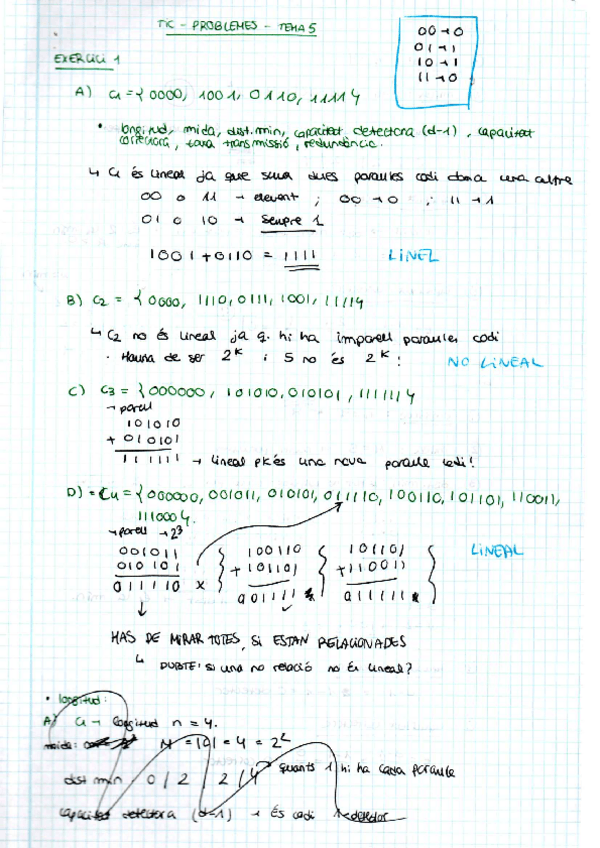 TIC - PROBLEMES - TEMA 5
00 → 0
01 → 1
10 → 1
11 → 0
EXERCICI 1
A) C1 = { 0000, 1001, 0110, 1111 }
• longitud, mida, dist. min, capacitat detectora (d-1), capacitat
correctora, taxa transmissió, redundància.
↳ C1 és lineal ja que suma dues paraules codi dona una altre
00 o 11 → element ; 00 → 0 ; 11 → 1
01 o 10 → Sempre 1
1001 + 0110 = 1111 LINEL
B) C2 = { 0000, 1110, 0111, 1001, 1111 }
↳ C2 no és lineal ja q. hi ha imparell paraules codi
• Hauria de ser 2^k i 5 no és 2^k! NO LINEAL
C) C3 = { 000000, 101010, 010101, 111111 }
→ parell
101010
+ 010101
111111 → lineal pk és una nova paraula codi!
D) = C4 = { 000000, 001011, 010101, 011110, 100110, 101101, 110011,
111000 }.
→ parell → 2^3
001011 100110 101101 LINEAL
010101 + 101101 + 110011
011110 x 001111 011111
HAS DE MIRAR TOTES, SI ESTAN RELACIONADES
↳ DUBTE: si una no relació no és lineal?
• longitud:
A) C1 → longitud n = 4.
mida: M = |C| = 4 = 2^2
dist min 0 / 2 / 2 / 4 → quants 1 hi ha cada paraula
capacitat detectora (d-1) → És codi 1-detector